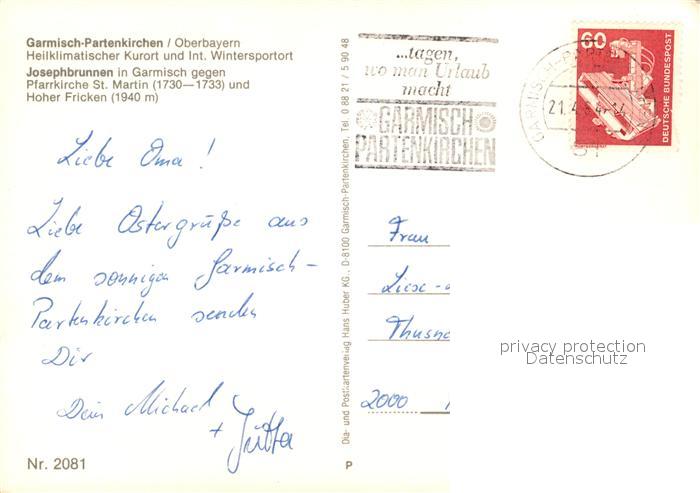 Garmisch-Partenkirchen / Oberbayern
Heilklimatischer Kurort und Int. Wintersportort
Josephbrunnen in Garmisch gegen
Pfarrkirche St. Martin (1730—1733) und
Hoher Fricken (1940 m)
Liebe Oma !
Liebe Ostergrüße aus
dem sonnigen Garmisch-
Partenkirchen senden
Dir
Dein Michael
+ Jutta
Nr. 2081
Dia- und Postkartenverlag Hans Huber KG., D-8100 Garmisch-Partenkirchen, Tel. 0 88 21 / 5 90 48
P
...tagen,
wo man Urlaub
macht
GARMISCH
PARTENKIRCHEN
60
DEUTSCHE BUNDESPOST
Frau
2000
privacy protection
Datenschutz